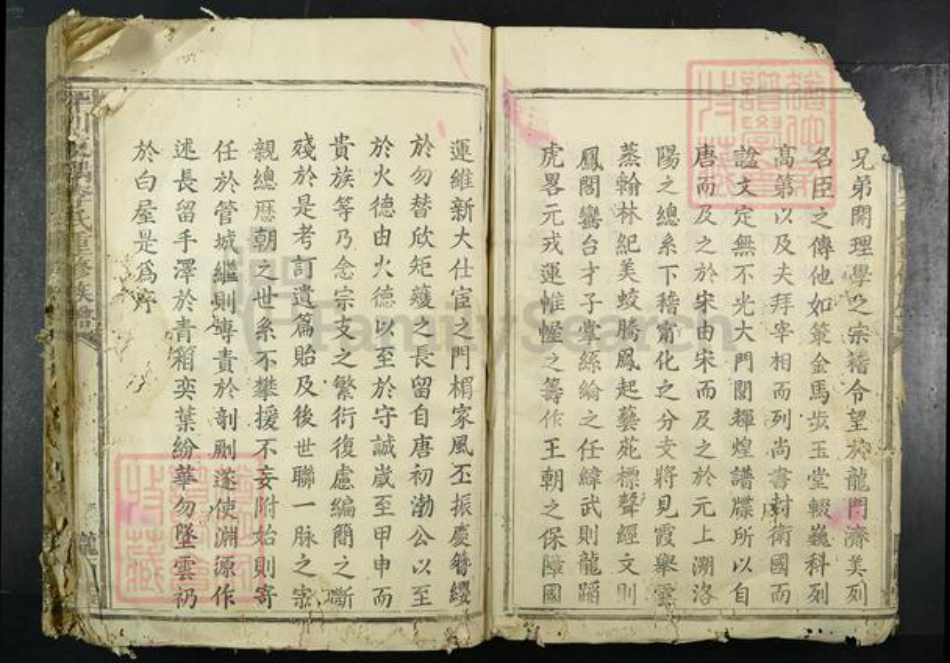 兄弟開理學之宗稽令望於龍門濟美列
名臣之傳他如策金馬步玉堂輟巍科列
高第以及夫拜宰相而列尚書封衛國而
諡文定無不光大門閭輝煌譜牒所以自
唐而及之於宋由宋而及之於元上溯洛
陽之總系下稽甯化之分支將見霞舉雲
蒸翰林紀美蛟騰鳳起藝苑標聲經文則
鳳閣鸞台才子掌絲綸之任緯武則龍蹈
虎畧元戎運帷幄之籌作王朝之保障國
運維新大仕宦之門楣家風丕振慶簪纓
於勿替欣矩矱之長留自唐初渤公以至
於火德由火德以至於守誠歲至甲申而
貴族等乃念宗支之繁衍復慮編簡之斷
殘於是考訂遺篇貽及後世聯一脉之宗
親總歷朝之世系不攀援不妄附始則寄
任於管城繼則專責於剞劂遂使淵源作
述長留手澤於青箱奕葉紛華勿墜雲礽
於白屋是為序
李氏重修族譜
FamilySearch
收藏
收藏